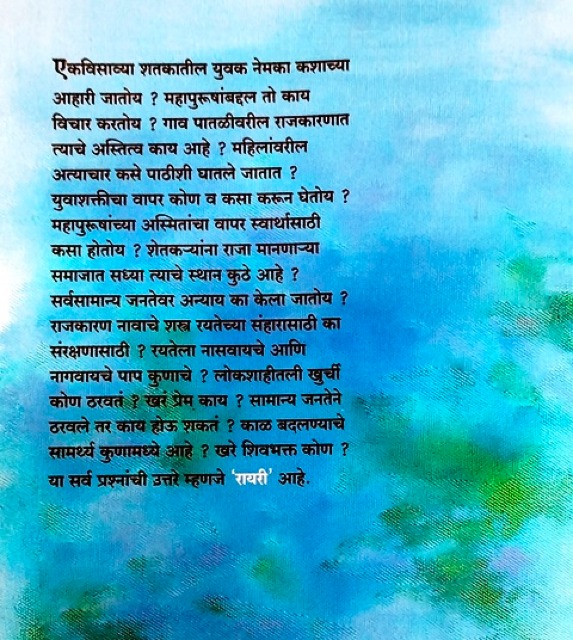 एकविसाव्या शतकातील युवक नेमका कशाच्या
आहारी जातोय ? महापुरूषांबद्दल तो काय
विचार करतोय ? गाव पातळीवरील राजकारणात
त्याचे अस्तित्व काय आहे ? महिलांवरील
अत्याचार कसे पाठीशी घातले जातात ?
युवाशक्तीचा वापर कोण व कसा करून घेतोय ?
महापुरूषांच्या अस्मितांचा वापर स्वार्थासाठी
कसा होतोय ? शेतकऱ्यांना राजा मानणाऱ्या
समाजात सध्या त्याचे स्थान कुठे आहे ?
सर्वसामान्य जनतेवर अन्याय का केला जातोय ?
राजकारण नावाचे शस्त्र रयतेच्या संहारासाठी का
संरक्षणासाठी ? रयतेला नासवायचे आणि
नागवायचे पाप कुणाचे ? लोकशाहीतली खुर्ची
कोण ठरवतं ? खरं प्रेम काय ? सामान्य जनतेने
ठरवले तर काय होऊ शकतं ? काळ बदलण्याचे
सामर्थ्य कुणामध्ये आहे ? खरे शिवभक्त कोण ?
या सर्व प्रश्नांची उत्तरे म्हणजे ‘रायरी’ आहे.